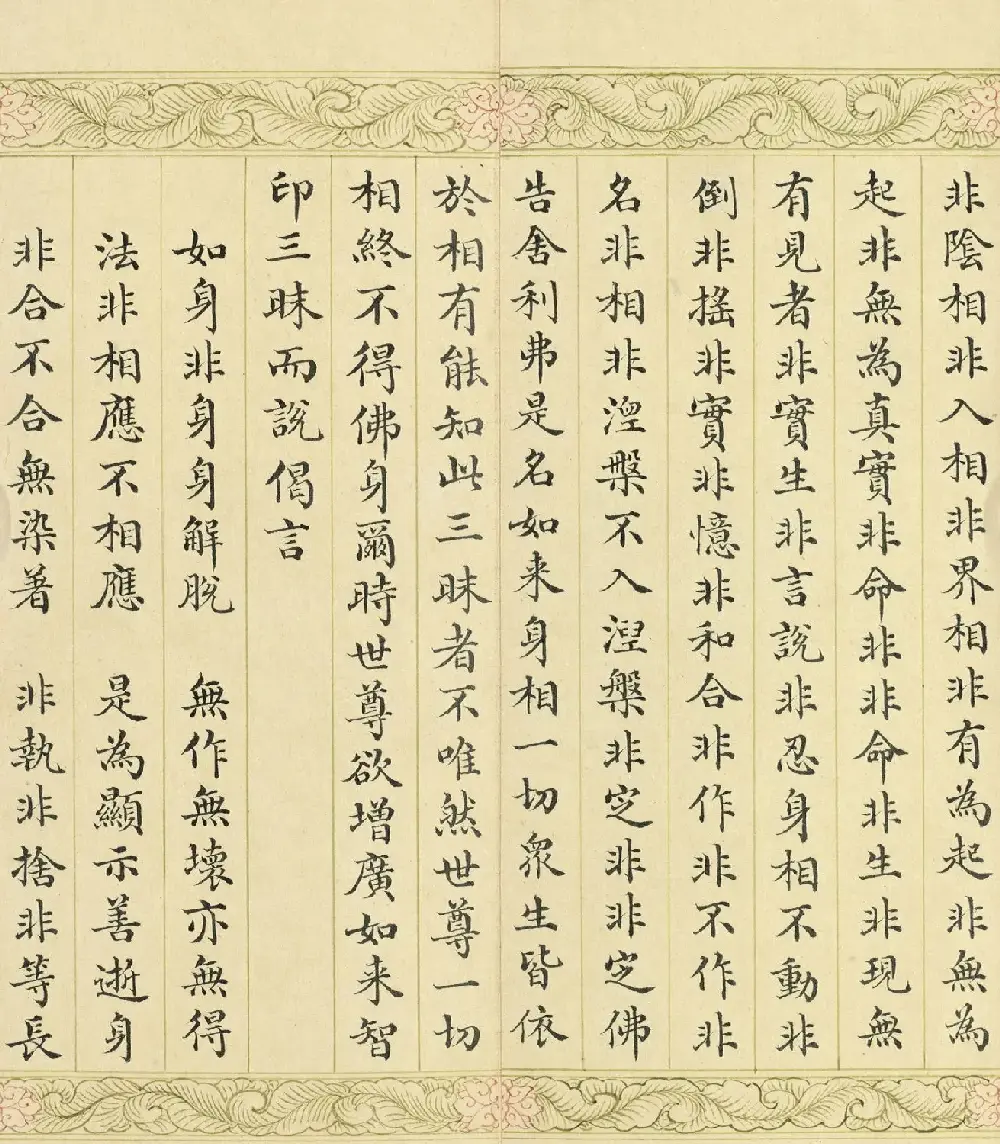 非陰相非入相非界相非有為起非無為
起非無為真實非命非非命非生非現無
有見者非實生非言說非忍身相不動非
倒非搖非實非憶非和合非作非不作非
名非相非涅槃不入涅槃非定非非定佛
告舍利弗是名如来身相一切衆生皆依
於相有能知此三昧者不唯然世尊一切
相終不得佛身爾時世尊欲增廣如来智
印三昧而說偈言
如身非身身解脫 無作無壞亦無得
法非相應不相應 是為顯示善逝身
非合不合無染著 非執非捨非等長